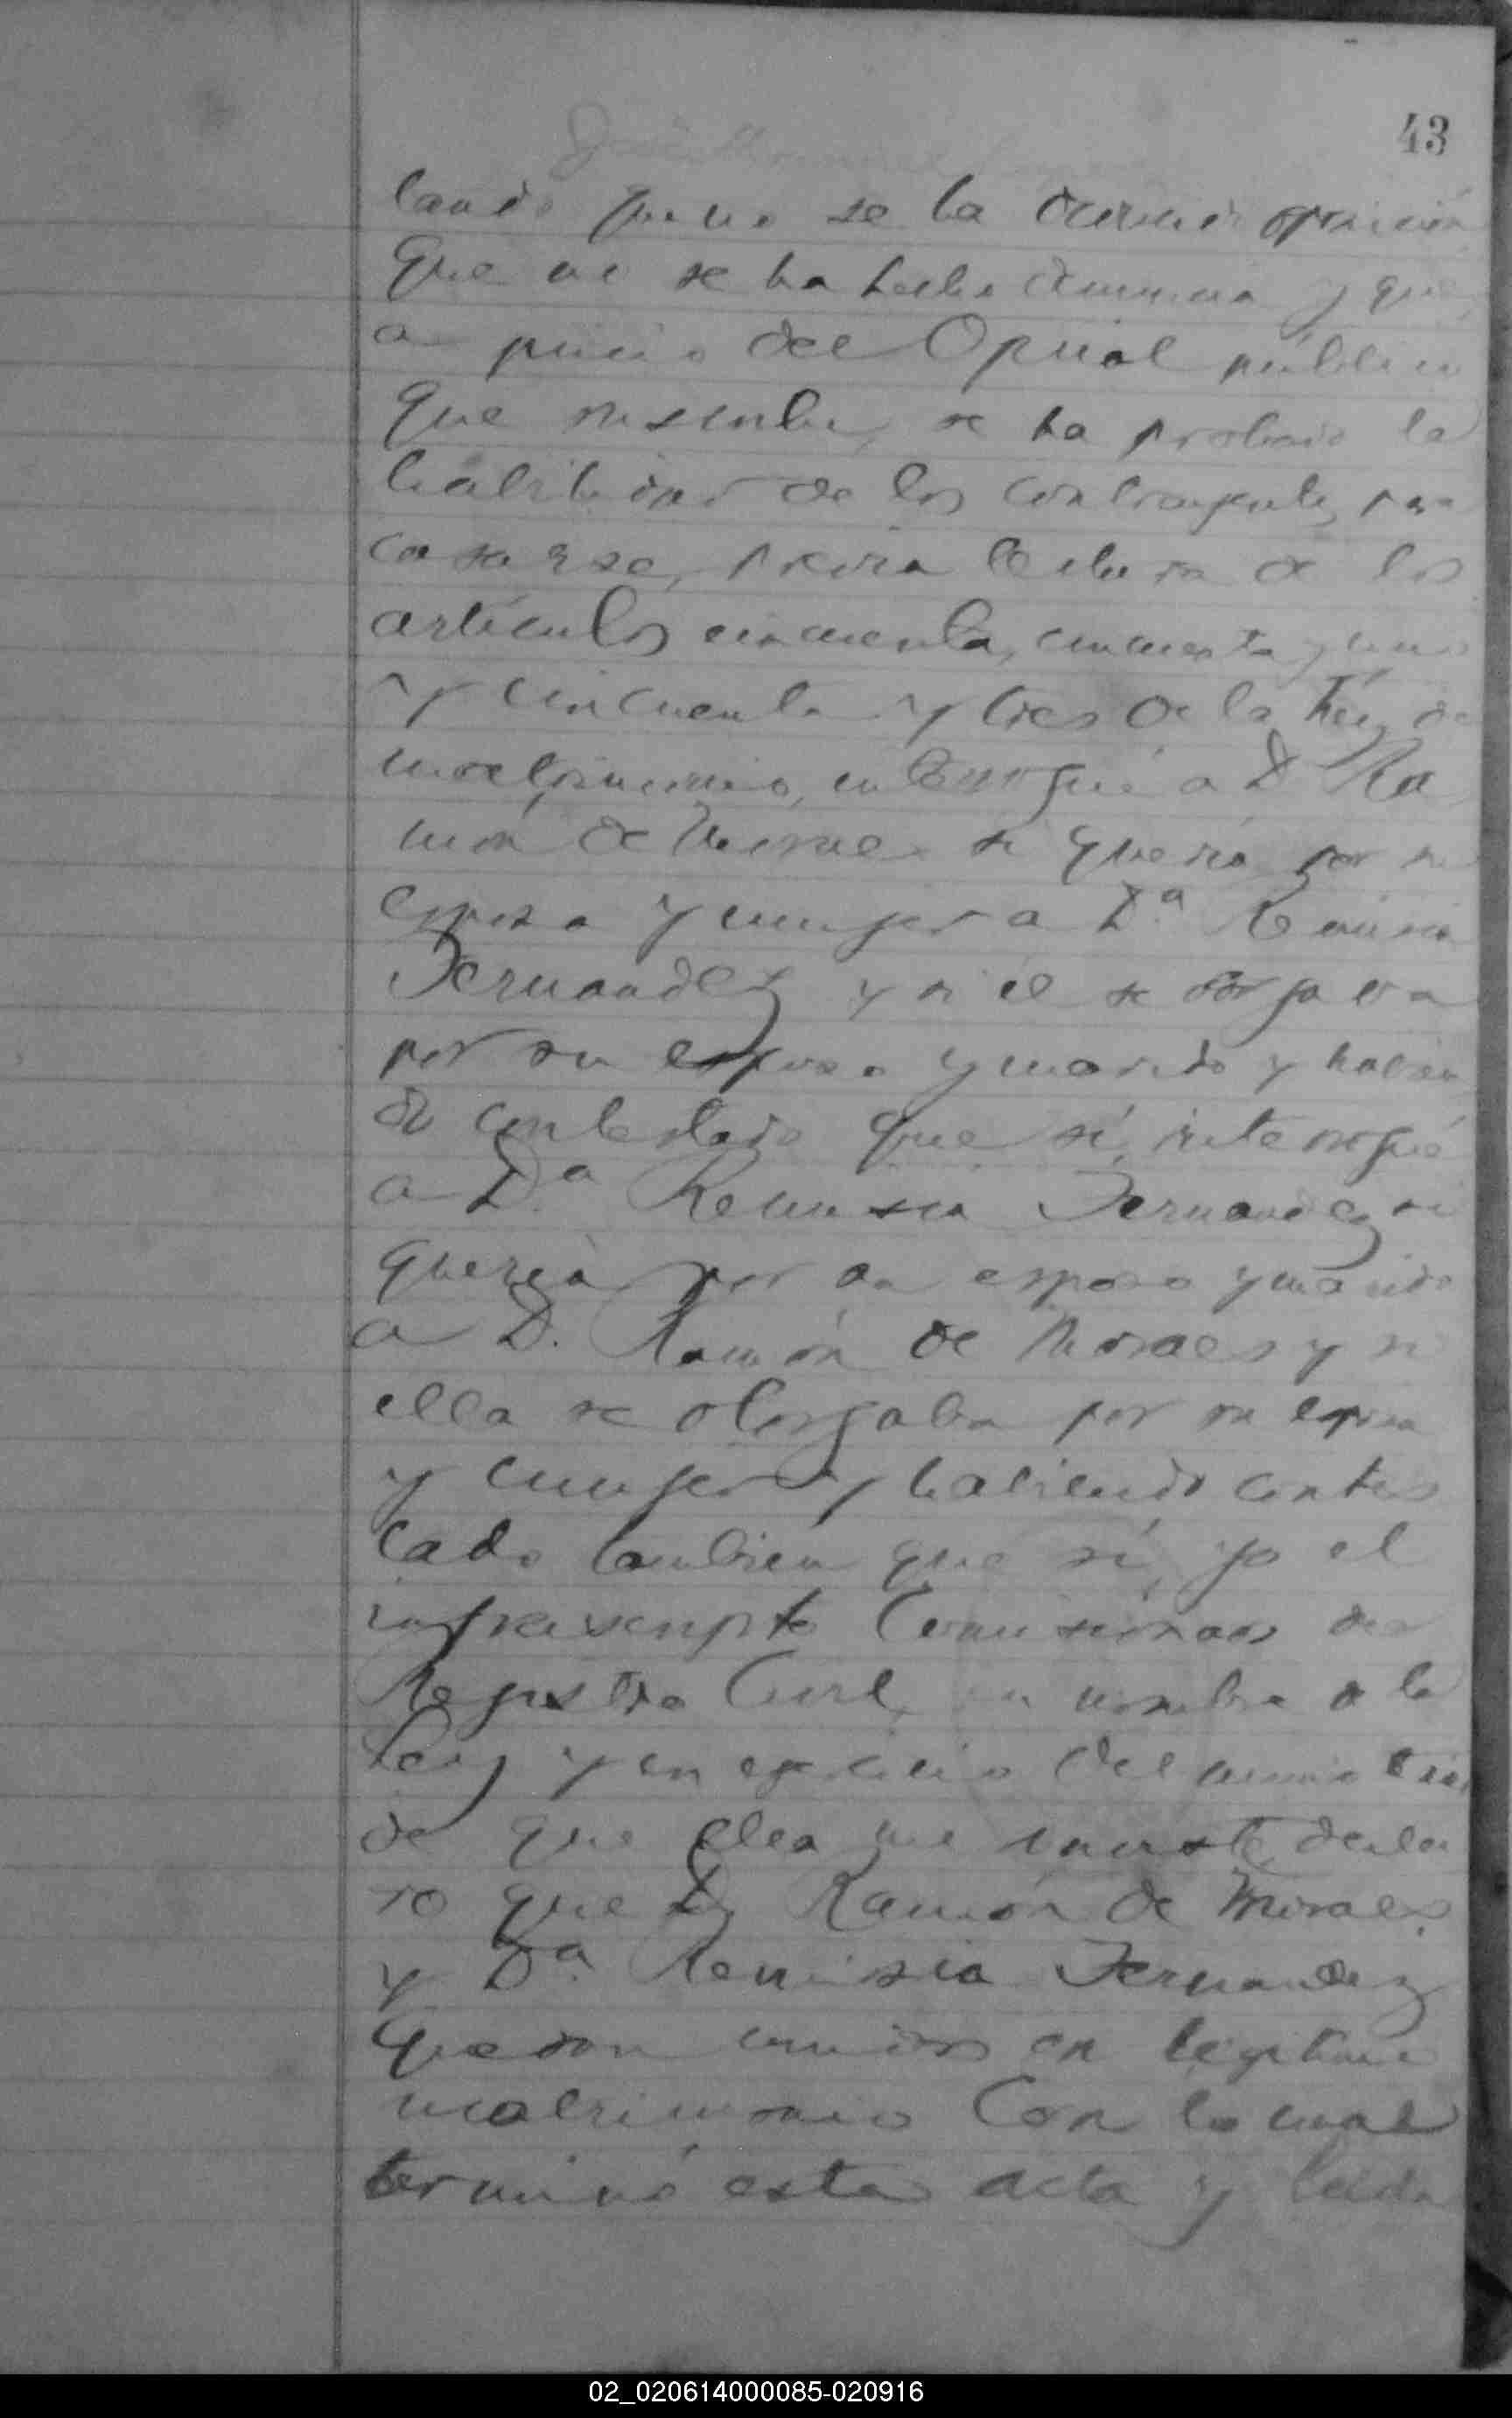 43
tando que no se ha deducido oposición
que no se ha hecho denuncia y que,
a juicio del Oficial público
que suscribe, se ha probado la
habilidad de los contrayentes para
casarse, previa lectura de los
artículos cincuenta, cincuenta y uno
y cincuenta y tres de la Ley de
matrimonio, interrogué a D. Ra
món de Moraes si quería por su
esposa y mujer a D.ª Remisia
Fernandez y si él se otorgaba
por su esposo y marido y habien
do contestado que sí, interrogué
a D.ª Remisia Fernandez si
quería por su esposo y marido
a D. Ramón de Moraes y si
ella se otorgaba por su esposa
y mujer y habiendo contes
tado también que sí, yo el
infrascripto Comisionado del
Registro Civil, en nombre de la
Ley y en ejercicio del ministerio
de que ella me inviste, decla
ro que D. Ramón de Moraes
y D.ª Remisia Fernandez
quedan unidos en legítimo
matrimonio Con lo cual
terminó esta acta y leida
02_020614000085-020916